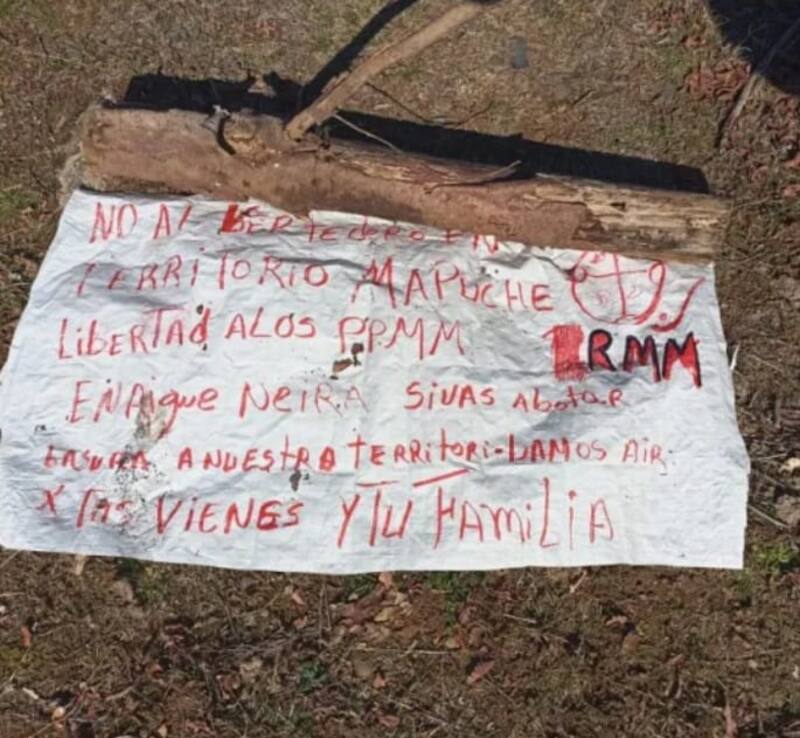 NO Al BERTEDERO EN
TERRITORIO MAPUCHE
LIBERTAd ALOS PPMM
RMM
ENRIque NeiRA SIVAS AbotaR
BASURA ANUESTRA TERRItoRi-BAMOS AIR
X TUS VIENES Y TU FAMILIA